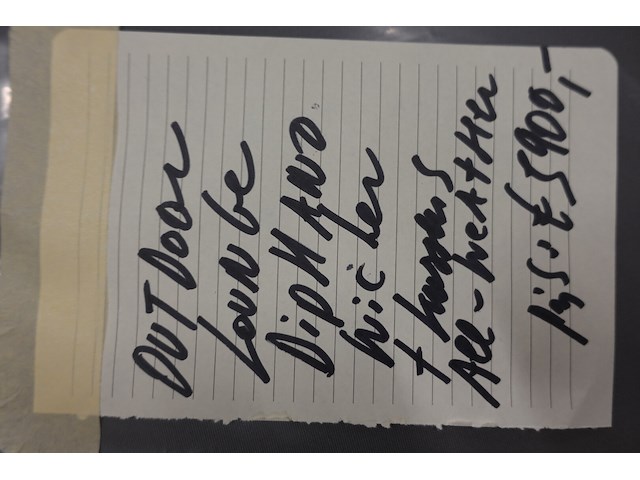 OUTDOOR
LOUNGE
DiphANO
wicker
+ kussens
All-weAtHer
prijs: € 5900,-